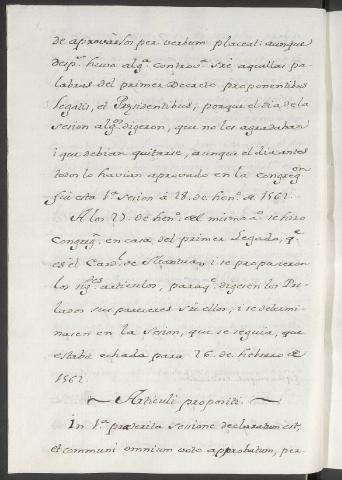 de aprovarlos per verbum placet: aunque
desp.ˢ huvo alg.ª controv.ª sre aquellas pa-
labras del primer Decreto proponentibus
Legatis, et Presidentibus; porque el dia de la
Sesion alg.ˢ digeron, que no les agradaban
i que debian quitarse, aunque el dia antes
todos lo havian aprovado en la congreg.ᵒⁿ
fue esta 1.ª Sesion à 18. de hen.º de 1562.
A los 27. de hen.º del mismo a.º se hizo
Congreg.ⁿ en casa del primer Legado, q.ᵉ
es el Card.ˡ de Mantua, i se propusieron
los sig.ᵗᵉˢ articulos, para q.ᵉ digesen los Pre-
lados sus pareceres sre ellos, i se determi-
nasen en la Sesion, que se seguia, que
estaba echada para 26. de Febrero de
1562.
~ Articuli propositi ~
In 1.ª praeterita Sessione declaratum est,
et communi omnium voto approbatum, per-